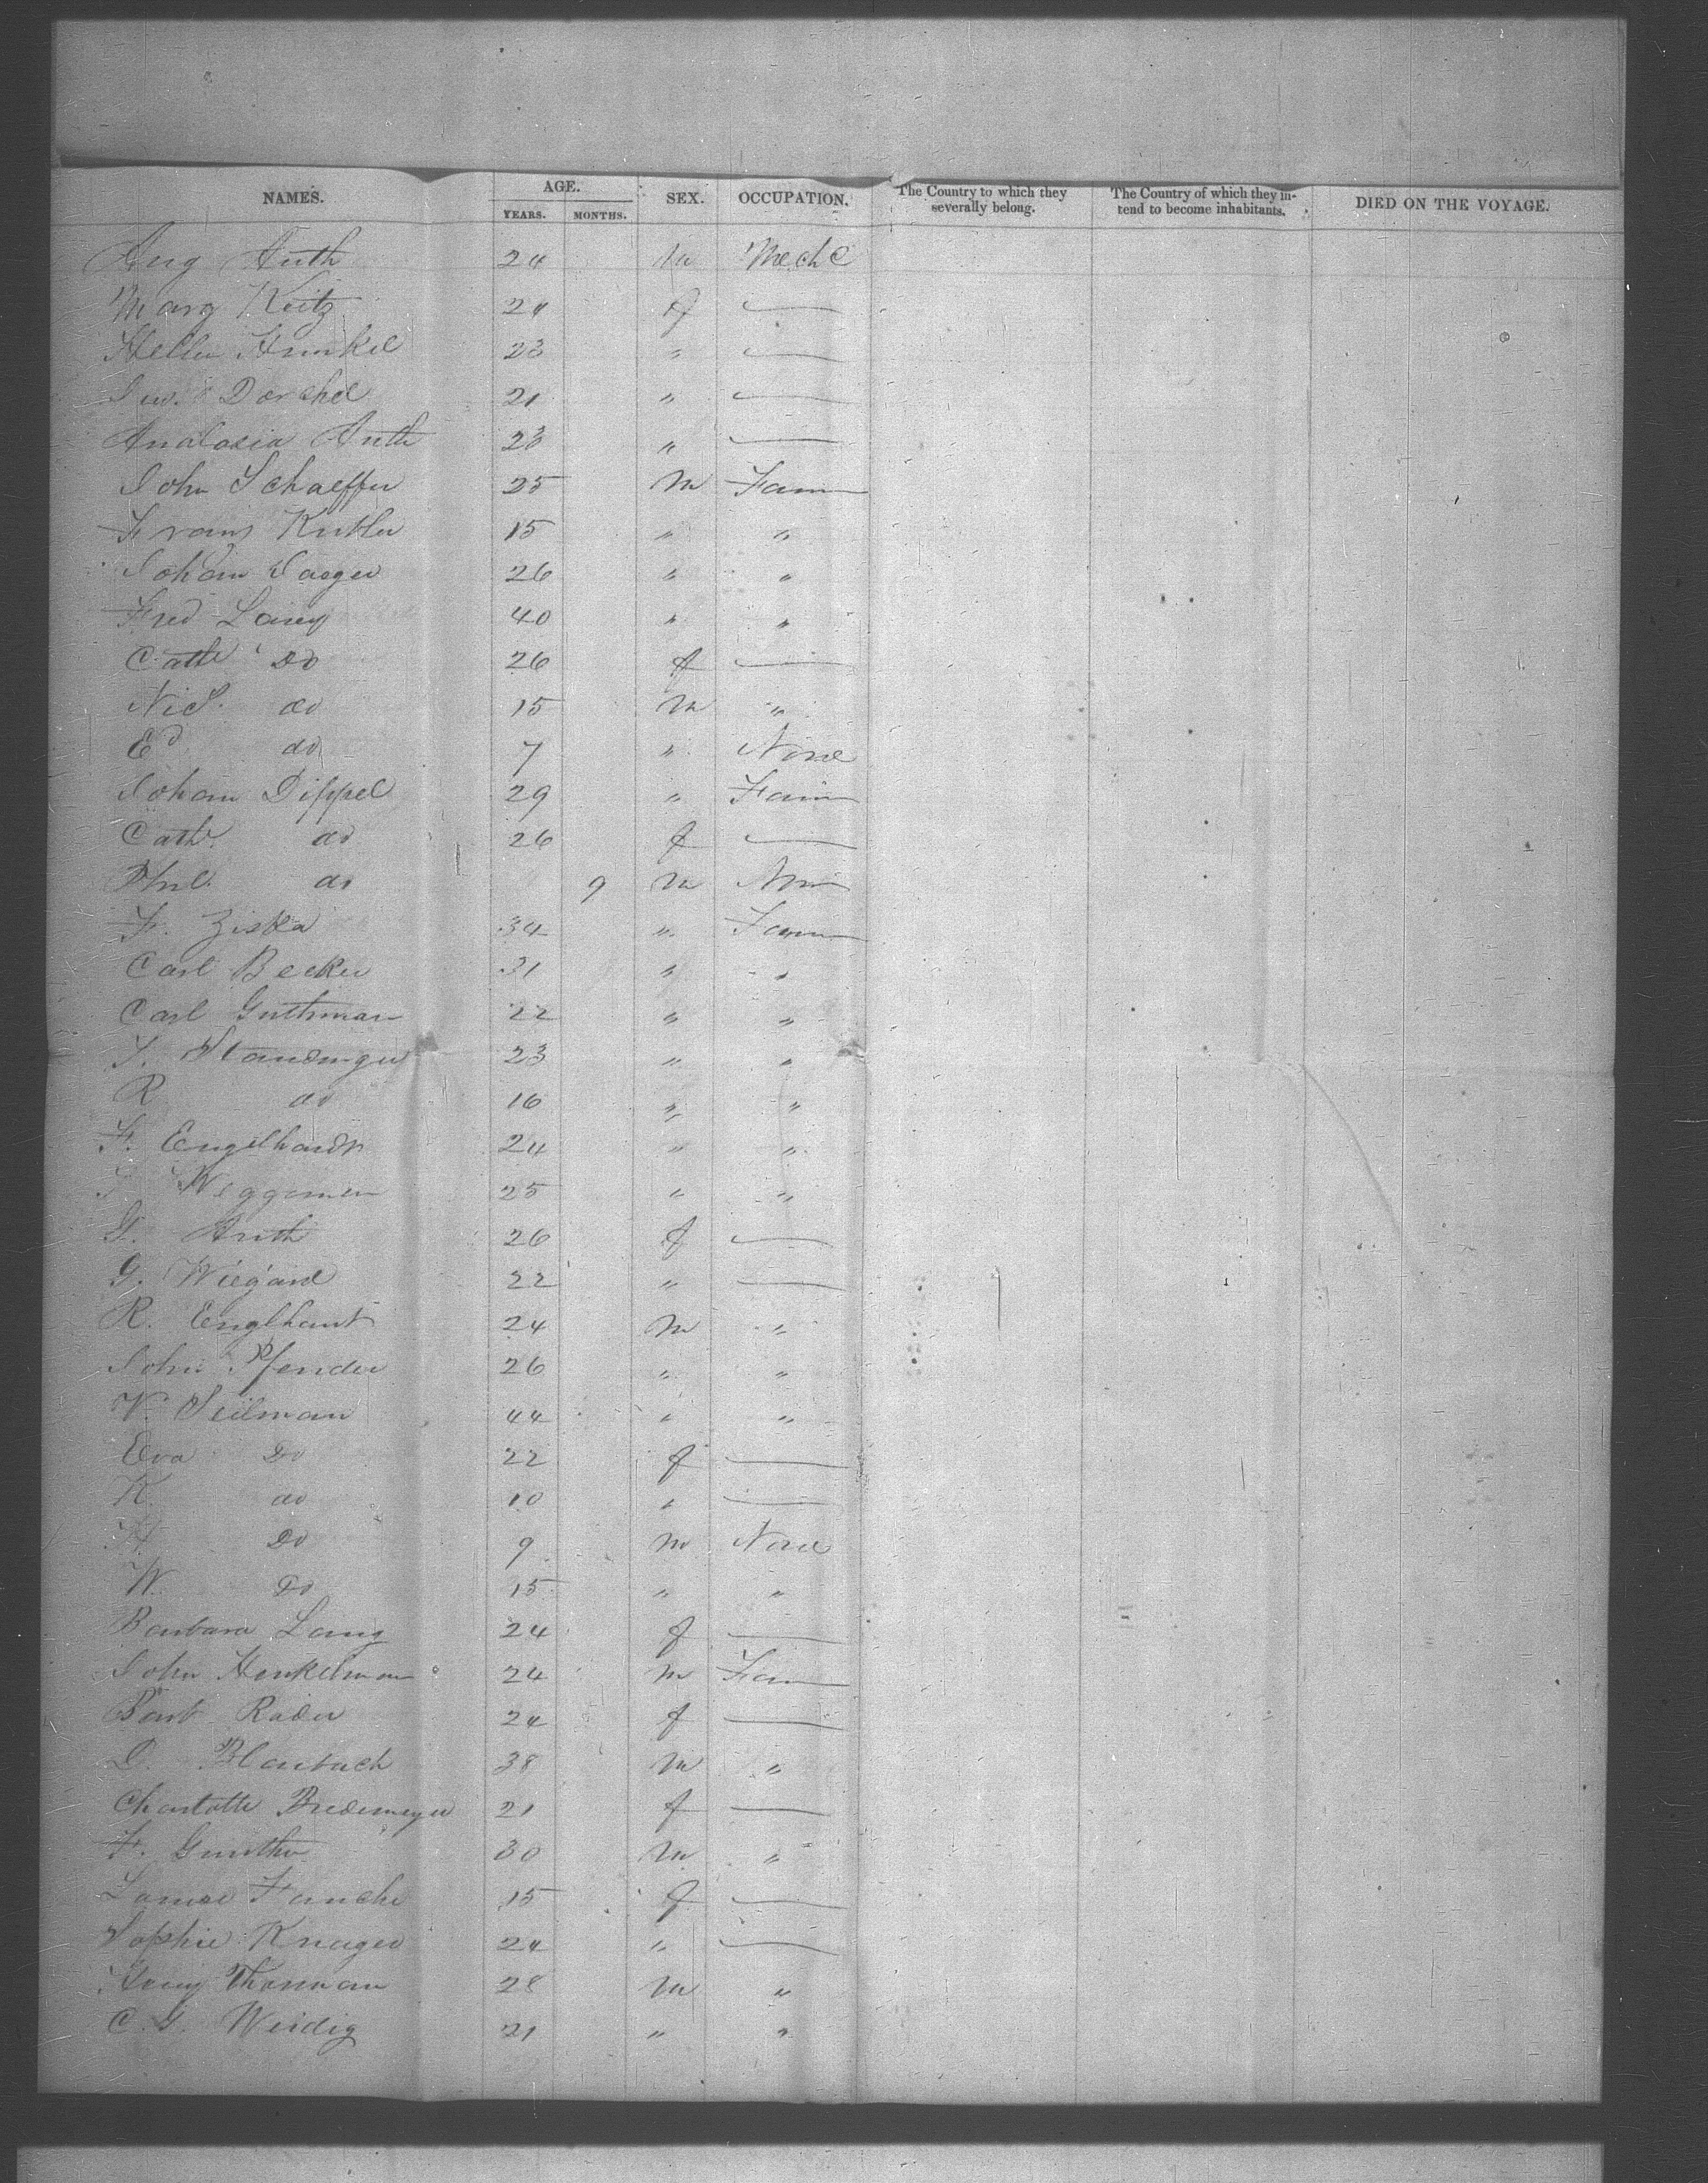 NAMES. AGE. SEX. OCCUPATION. The Country to which they severally belong. The Country of which they intend to become inhabitants. DIED ON THE VOYAGE.
YEARS. MONTHS.
Aug Auth 24 m Mech c
Marg Reitz 24 f —
Hellen Hunkel 23 " —
Dorchel 21 " —
Auth 23 " —
John Schaeffer 25 m Farm
Frans Kuthler 15 " "
Johann Jaeger 26 " "
Fred Lang 40 " "
Cath Do 26 f —
Nic. do 15 m "
Ed do 7 " None
Johann Dippel 29 " Farm
Cath. do 26 f —
Phil. do 9 m Non
F. Ziska 34 " Farm
Carl Becker 31 " "
Carl Guthman 22 " "
Staudinger 23 " "
R do 16 " "
F. Engelhardt 24 " "
Weggamen 25 " "
G. Auth 26 f —
G. Wiegand 22 " —
R. Englhaut 24 m "
John Pfender 26 " "
V. Seilman 44 " "
Eva Do 22 f —
K. do 10 " —
Do 9 m None
W. Do 15 " "
Barbara Lang 24 f —
John Henkelman 24 m Farm
Barb Rader 24 f —
Blaubach 38 m "
Charlotte Bredemeyer 21 f —
F. Gunther 30 m "
Louise Fauche 15 f —
Sophie Knager 24 " —
Thorman 28 m "
C. G. Weidig 21 " "